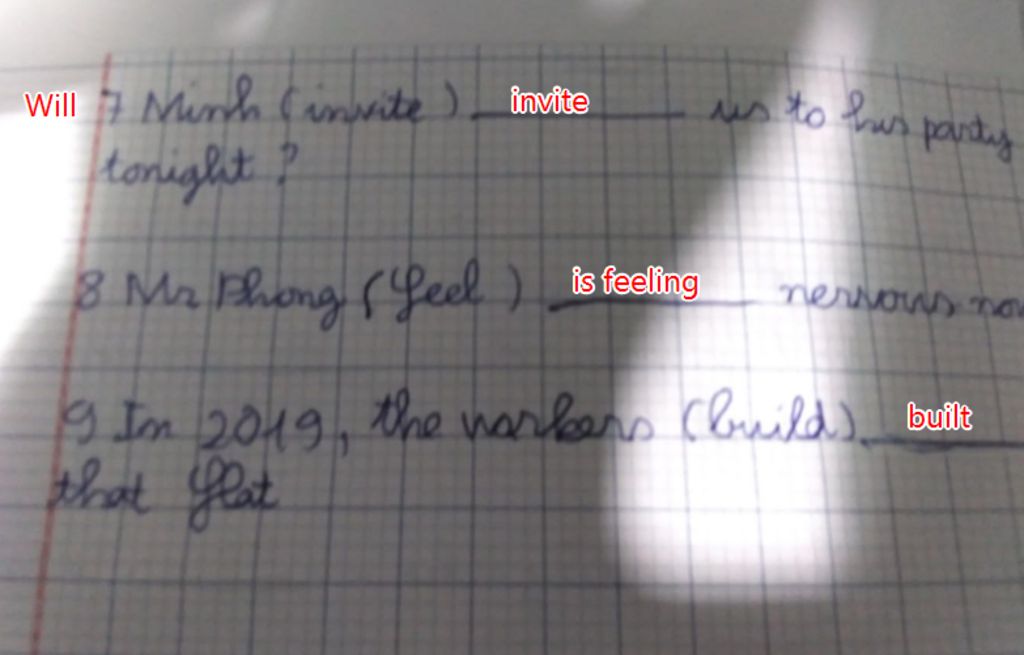 Will 7 Minh (invite) invite us to his party
tonight?
8 Mr Phong (feel) is feeling nervous now
9 In 2019, the workers (build) built
that flat